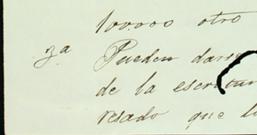 100.000 otro
7a Pueden darse
de la escritur
resado que l